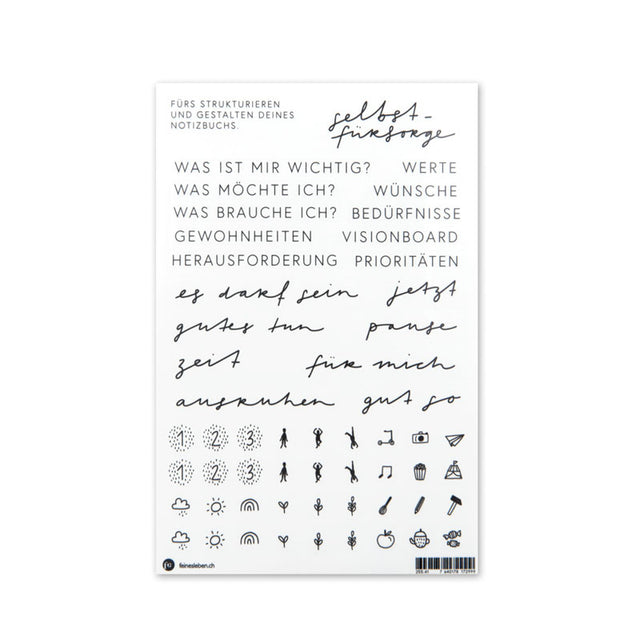 FÜRS STRUKTURIEREN
UND GESTALTEN DEINES
NOTIZBUCHS.
selbst-
fürsorge
WAS IST MIR WICHTIG? WERTE
WAS MÖCHTE ICH? WÜNSCHE
WAS BRAUCHE ICH? BEDÜRFNISSE
GEWOHNHEITEN VISIONBOARD
HERAUSFORDERUNG PRIORITÄTEN
es darf sein jetzt
gutes tun pause
zeit für mich
ausruhen gut so
1 2 3
1 2 3
feinesleben.ch